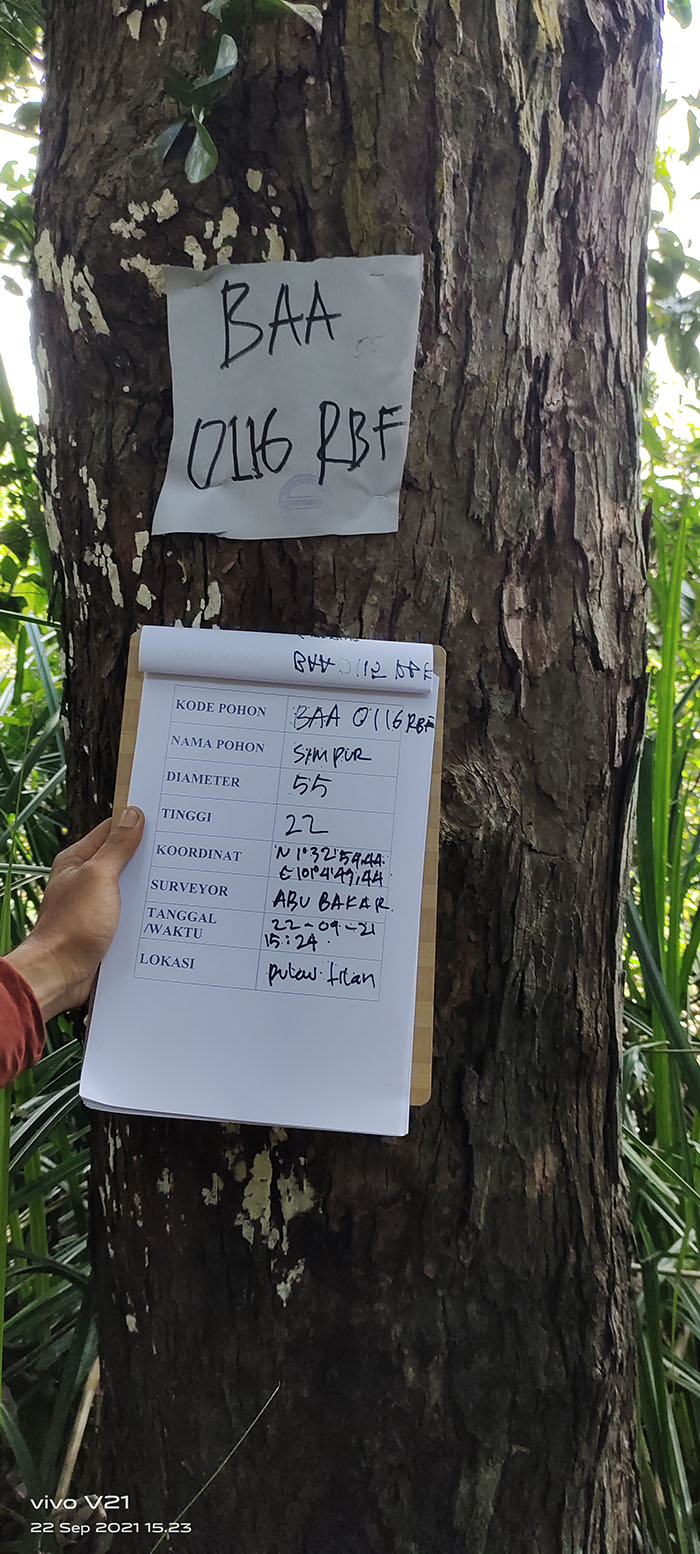 BAA
0116 RBF
KODE POHON BAA 0116 RBF
NAMA POHON SIMPUR
DIAMETER 55
TINGGI 22
KOORDINAT N 1°32'54,44"
E 101°4'49,44
SURVEYOR ABU BAKAR
TANGGAL 22-09-21
/WAKTU 15:24
LOKASI
vivo V21
22 Sep 2021 15.23